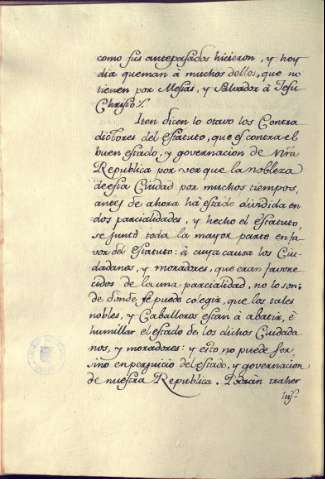 como sus antepasados hicieron, y hoy
dia queman à muchos dellos, que no
tienen por Mesias, y Salvador à Jesu
Christo/.
Iten dicen lo otavo los Contra
dictores del estatuto, que es contra el
buen estado, y governacion de nra
Republica por ver que la nobleza
de esta Ciudad por muchos tiempos,
antes de ahora há estado dividida en
dos parcialidades, y hecho el estatuto,
se juntó toda la mayor parte en fa
vor del estatuto: à cuya causa los Ciu-
dadanos, y moradores, que eran favore
cidos de la una parcialidad, no lo son:
de donde se puede colegir, que los tales
nobles, y Caballeros estan à abatir, è
humillar el estado de los dichos Ciudada
nos, y moradores: y esto no puede ser,
sino en perjuicio del estado, y governacion
de nuestra Republica. Podrán traher